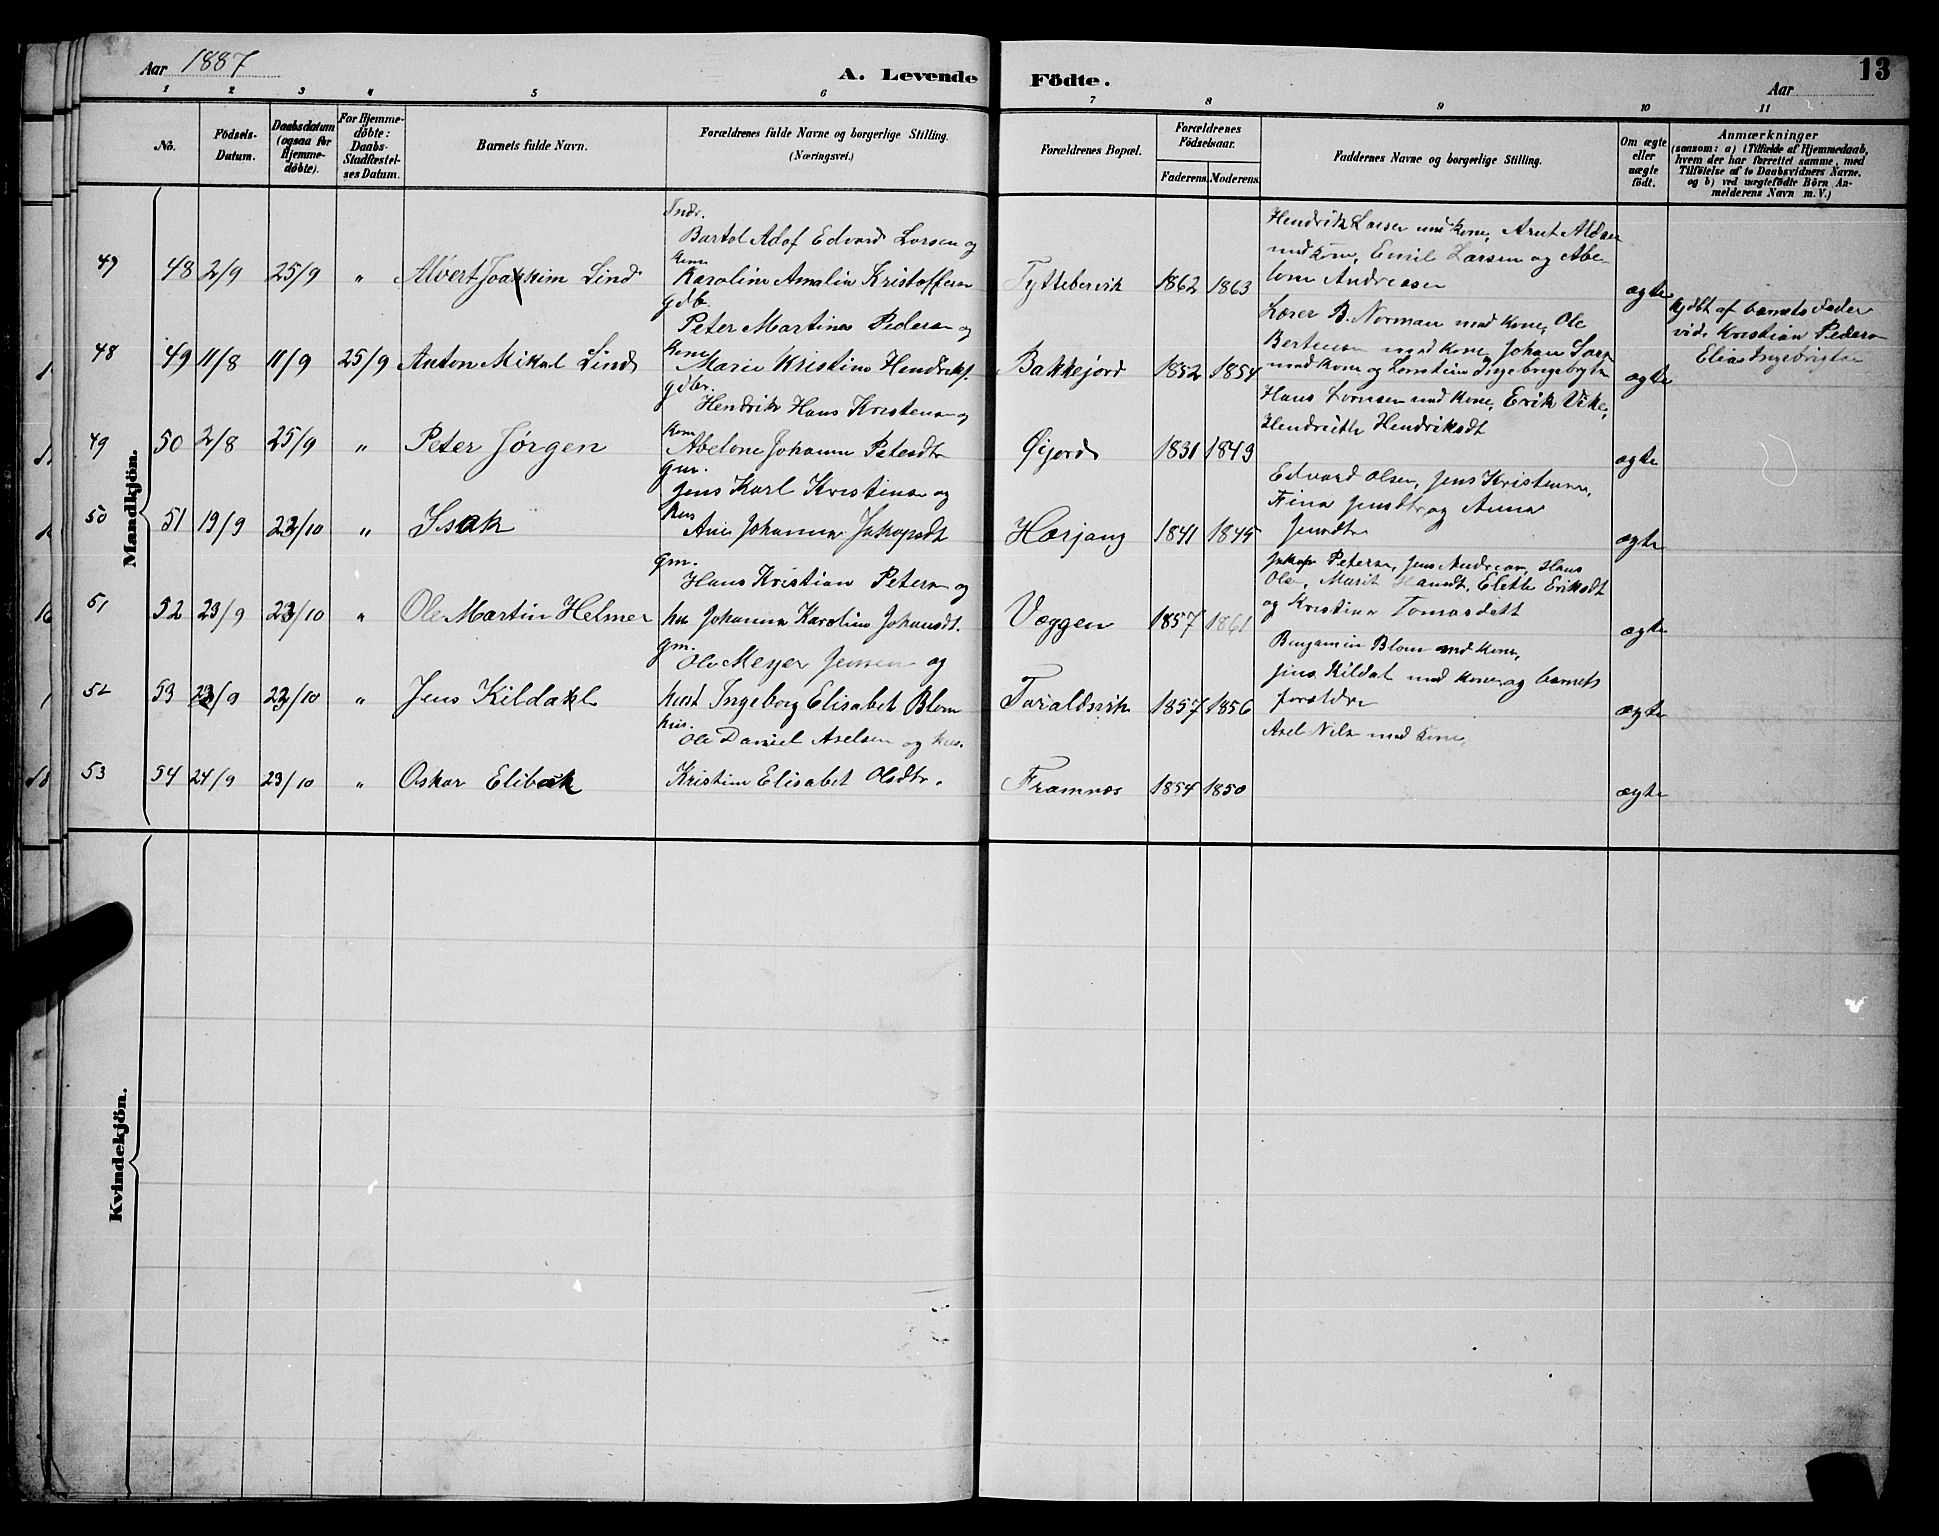 Aar 1887
A. Levende Födte.
Aar
13
1 2 3 4 5 6 7 8 9 10 11
No.
Födsels-
Datum.
Daabsdatum
(ogsaa for
Hjemme-
döbte).
For Hjemme-
döbte:
Daabs-
Stadfæstel-
ses Datum.
Barnets fulde Navn.
Forældrenes fulde Navne og borgerlige Stilling.
(Næringsvei.)
Forældrenes Bopæl.
Forældrenes
Födselsaar.
Faderens. Moderens.
Faddernes Navne og borgerlige Stilling.
Om ægte
eller
uægte
født.
Anmærkninger
(saasom: a) i Tilfælde af Hjemmedaab,
hvem der har forrettet samme, med
Tilföielse af to Daabsvidners Navne.
og b) ved uægtefödte Börn An-
melderens Navn m. V.)
Mandkjön.
47 48 2/9 25/9 " Alvert Joakkim Lind
Indr.
Bartol Adof Edvard Larsen og
kone
Karoline Amalia Kristoffersen
Tyttebervik 1862 1863
Hendrik Larsen med kone, Arnt Aldsen
med kone, Emil Larsen og Abe-
lone Andreasen
ægte
48 49 11/8 11/9 25/9 Anton Mikal Lind
gdb.
Peter Martines Pedersen og
kone
Marie Kristine Hendriks.
Bakkejord 1852 1854
Lærer B. Norman med kone, Ole
Bertensen med kone, Johan
med kone og
ægte
Hjdbt af barnets Fader
vid. Kristian Pedersen
Elias Ingebrigtsen
49 50 2/8 25/9 " Peter Jørgen
gdbr.
Hendrik Hans Kristensen og
kone
Abelone Johanna Petersdtr
Øijord 1831 1843
Hans Lornsen med kone, Erik Vike,
Hendrikke Hendriksdt
ægte
50 51 19/9 23/10 " Isak
gm.
Jens Karl Kristensen og
hus
Ane Johanna Jakopsdt
Hærjang 1841 1845
Edvard Olsen, Jens Kristensen,
Fina Jensdtr og Anna
Jensdtr
ægte
51 52 23/9 23/10 " Ole Martin Helmer
gm.
Hans Kristian Petersen og
hu Johanna Karoline Johansdt.
Væggen 1857 1861
Jakop Petersen, Jens Andreasen, Hans
Olsen, Marit Hansdt, Elette Eriksdt
og Kristina Tomasdatt
ægte
52 53 23/9 22/10 " Jens Kildakl
gm.
Ole Meyer Jensen og
hust Ingeborg Elisabet Blom
Taraldsvik 1857 1856
Benjamin Blom med kone,
Jens Kildal med kone og barnets
forældre
ægte
53 54 24/9 23/10 " Oskar Elibak
hus.
Ole Daniel Axelsen og hus.
Kristine Elisabet Olsdtr.
Framnæs 1854 1850
Axel Nils med kone,
ægte
Kvindekjön.